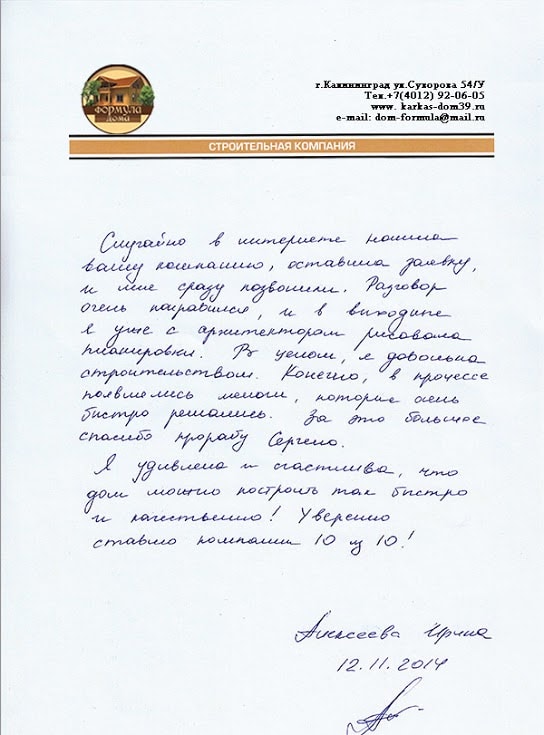 г.Калининград ул.Сухорова 54/У
Тел.+7(4012) 92-06-05
www. karkas-dom39.ru
e-mail: dom-formula@mail.ru
ФОРМУЛА
ДОМА
СТРОИТЕЛЬНАЯ КОМПАНИЯ
Случайно в интернете нашла
вашу компанию, оставила заявку,
и мне сразу позвонили. Разговор
очень понравился, и в выходные
я уже с архитектором рисовала
планировки. В целом, я довольна
строительством. Конечно, в процессе
появлялись мелочи, которые очень
быстро решались. За это большое
спасибо прорабу Сергею.
Я удивлена и счастлива, что
дом можно построить так быстро
и качественно! Уверенно
ставлю компании 10 из 10!
Алексеева Ирина
12.11.2014